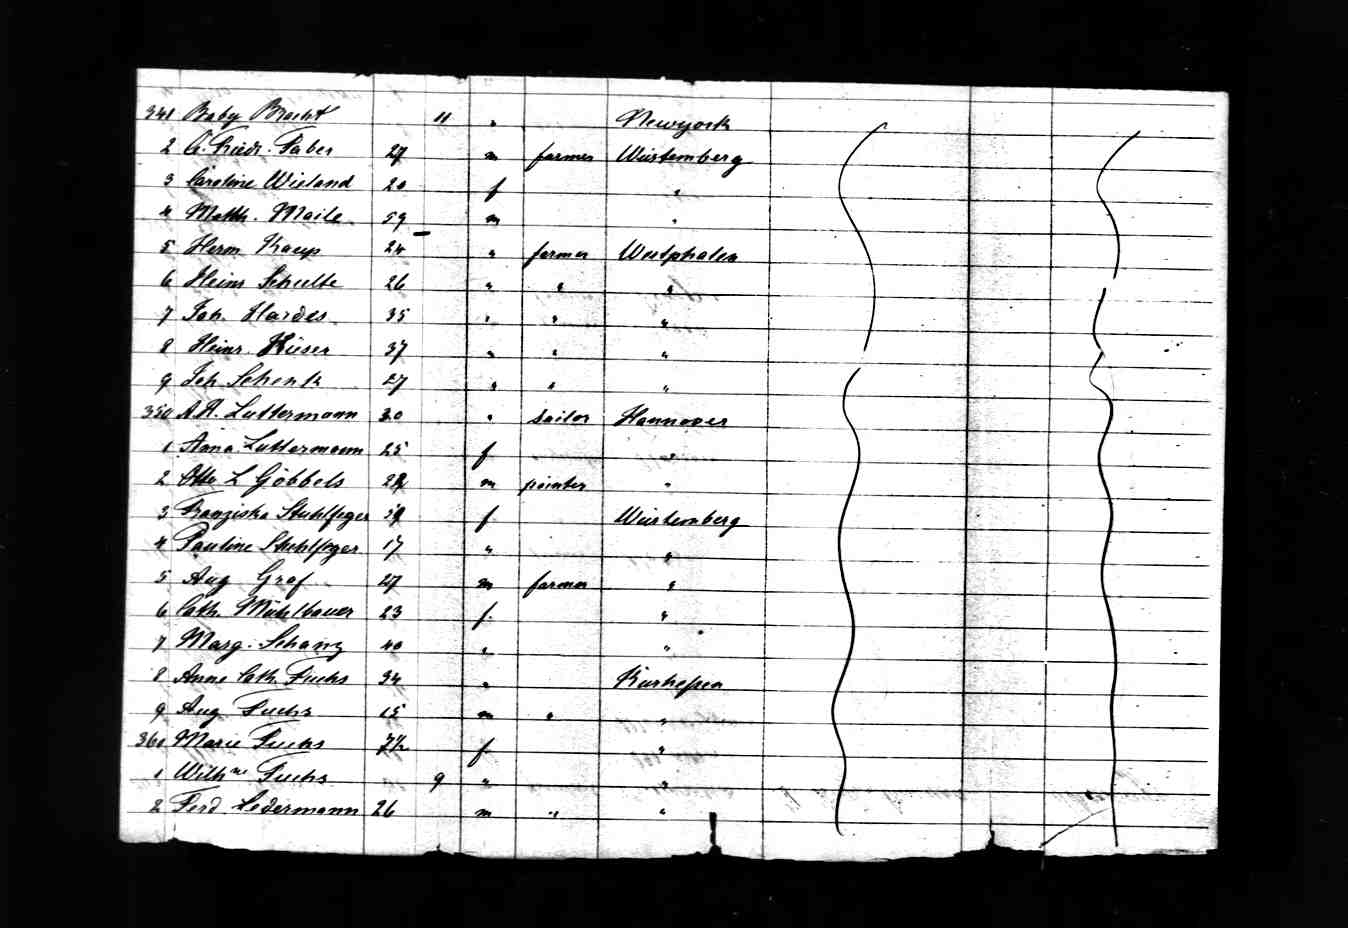 341 Baby Bracht 11 " Newyork
2 C. Friedr. Faber 27 m farmer Würtemberg
3 Caroline Wieland 20 f "
4 Matth. Maile 59 m "
5 Herm Kaup 24 " farmer Westphalen
6 Heinr Schulte 26 " " "
7 Joh. Hardes 35 " " "
8 Heinr. Kieser 37 " " "
9 Joh Schenk 27 " " "
350 A. H. Luttermann 30 " sailor Hannover
1 Anna Luttermann 25 f "
2 Otto L Göbbels 28 m painter "
3 Franziska Stuhlfeger f Würtemberg
4 Pauline Stuhlfeger 17 " "
5 Aug Graf 27 m farmer "
6 Cath Mühlbauer 23 f. "
7 Marg. Schanz 40 " "
8 Anne Cath Fuchs 34 " Kurhessen
9 Aug Fuchs 15 m " "
360 Marie Fuchs 7½ f "
1 Wilhne Fuchs 9 " "
2 Ferd. Ledermann 26 m " "